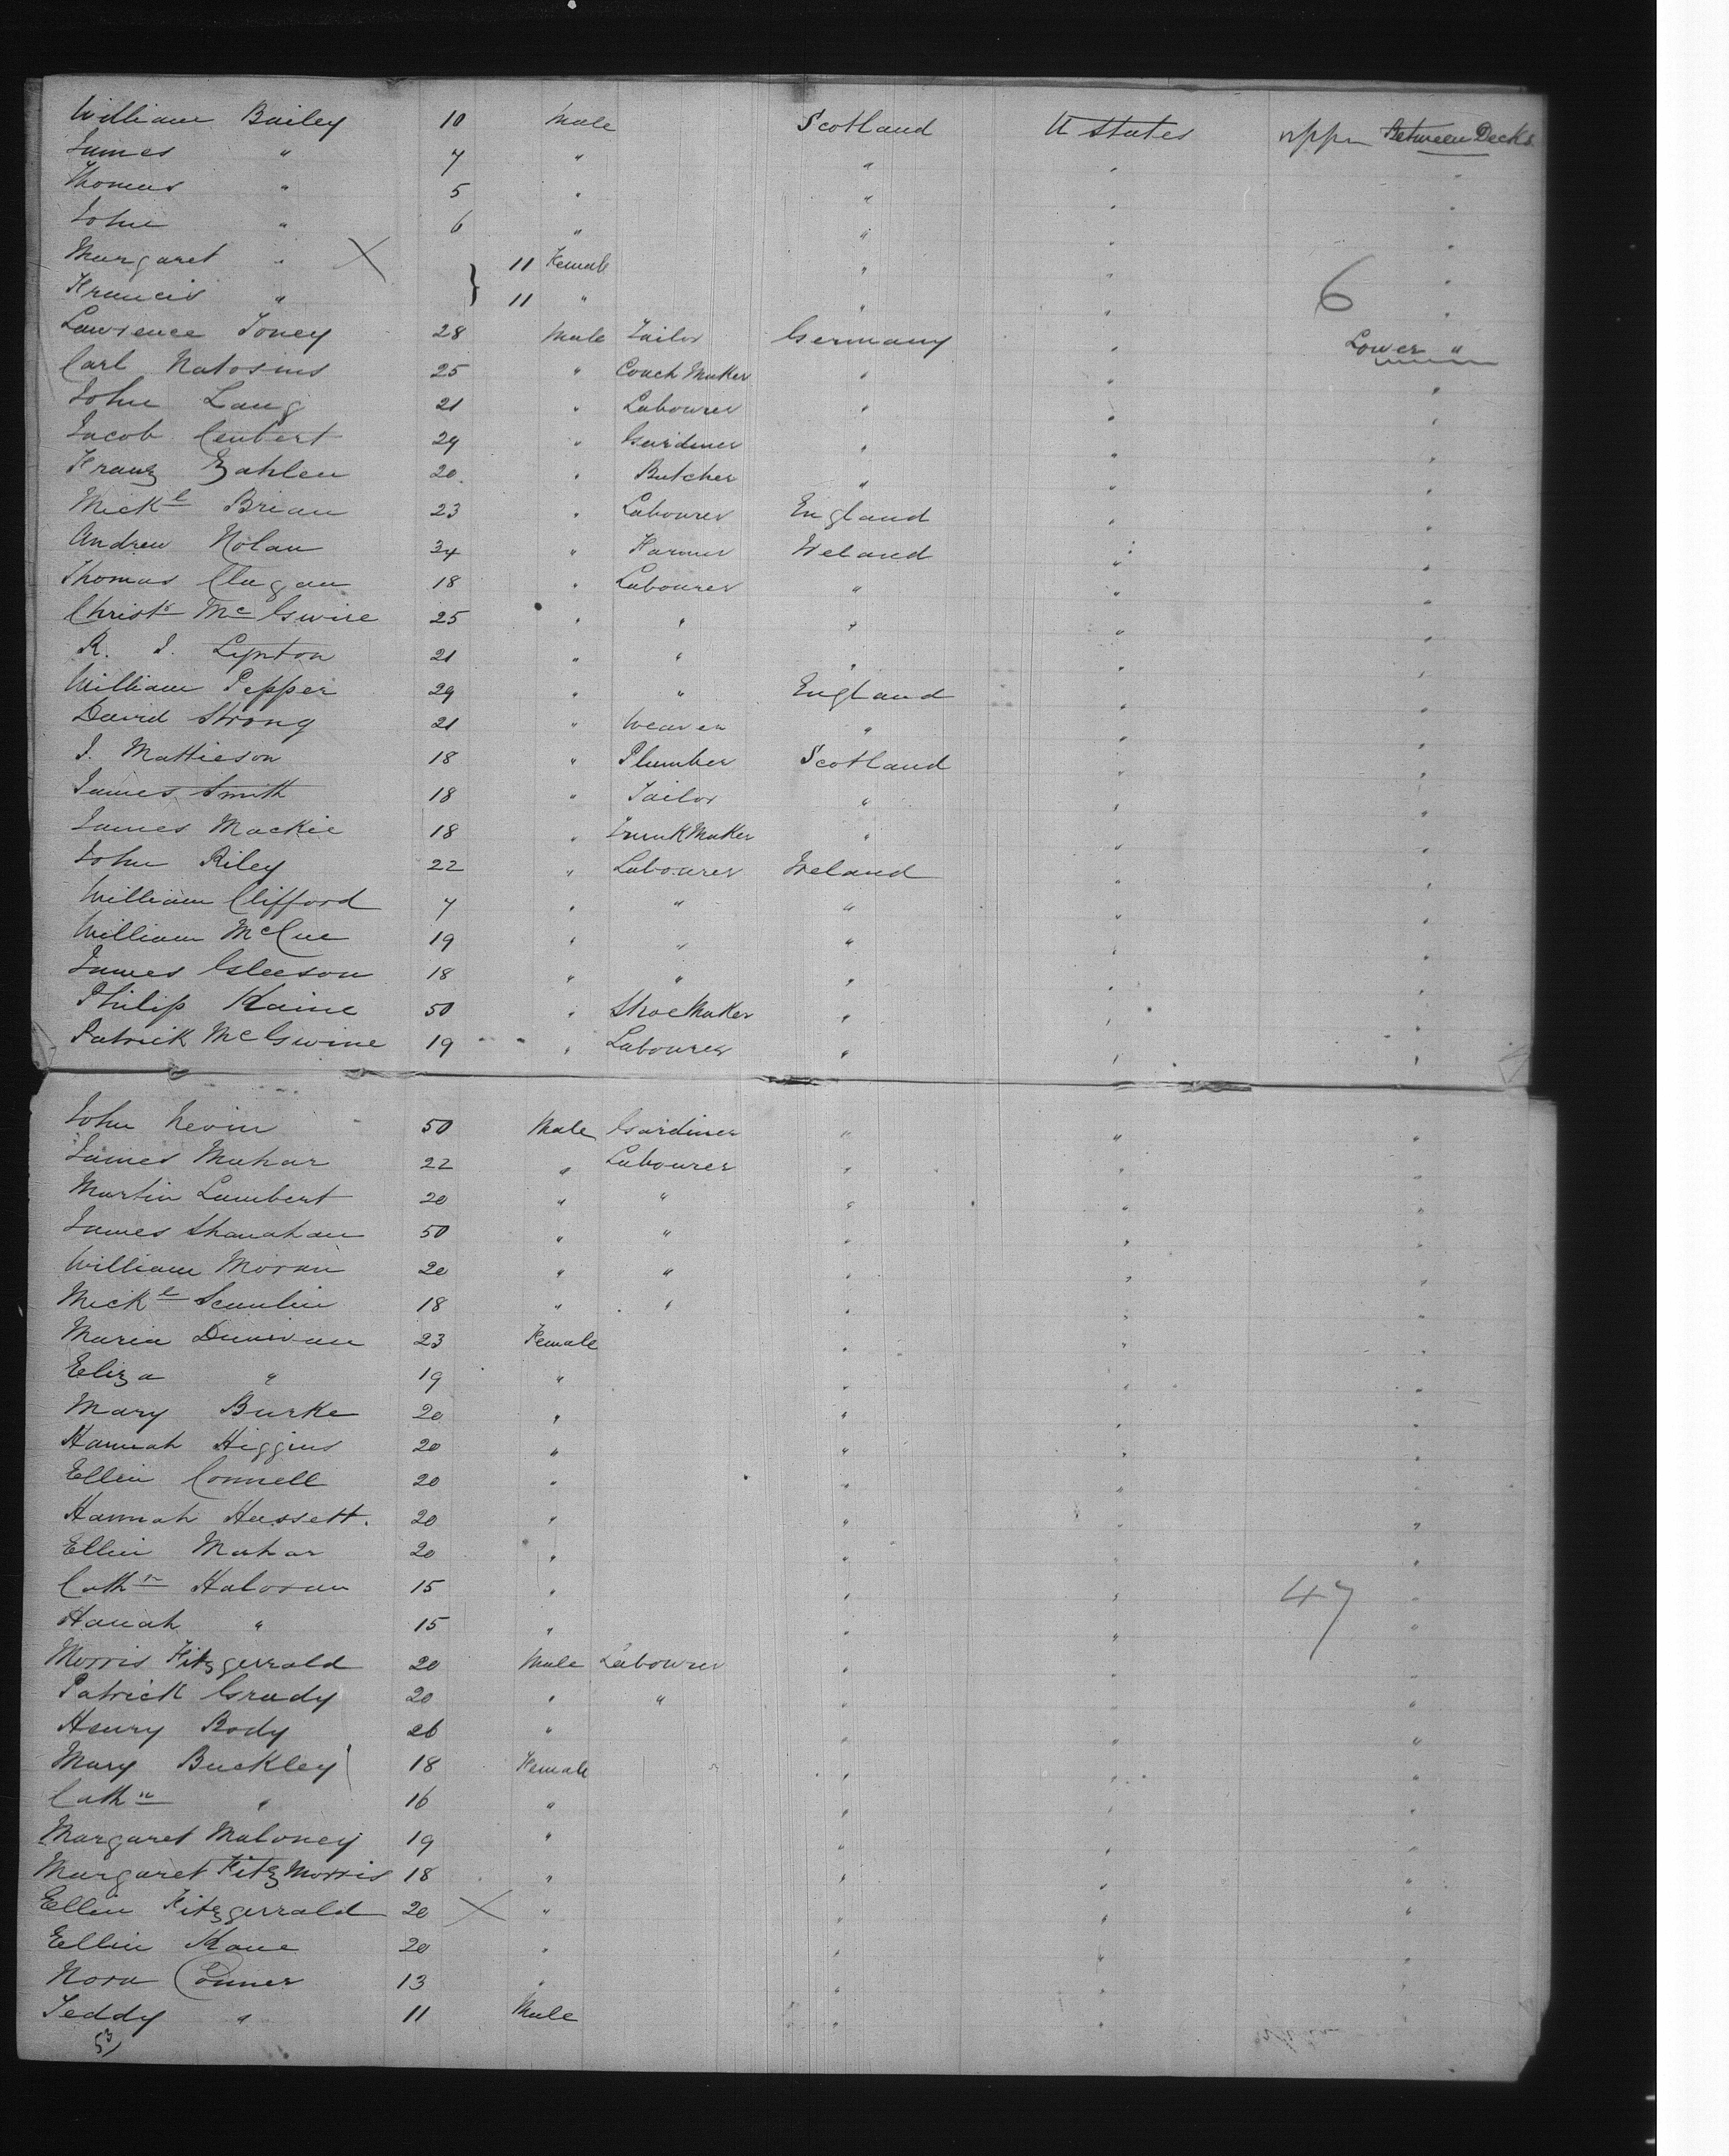 William Bailey 10 Male Scotland U States upper Between Decks
James " 7 " " " "
Thomas " 5 " " " "
John " 6 " " " "
Margaret " X 11 Female " " "
Francis " } 11 " " " " 6
Lawrence Toney 28 Male Tailor Germany " Lower "
Carl Natosius 25 " Coach Maker " " "
John Lang 21 " Labourer " " "
Jacob Ceubert 29 " Gardiner " " "
Franz Zahlen 20 " Butcher " " "
Mickl Brian 23 " Labourer England " "
Andrew Nolan 34 " Farmer Ireland " "
Thomas Clagan 18 " Labourer " " "
Christr McGwire 25 " " " " "
R. J. Lynton 21 " " " " "
William Pepper 29 " " England " "
David Strong 21 " Weaver " " "
J. Mattieson 18 " Plumber Scotland " "
James Smith 18 " Tailor " " "
James Mackie 18 " Trunk Maker " " "
John Riley 22 " Labourer Ireland " "
William Clifford 7 " " " " "
William McCue 19 " " " " "
James Gleeson 18 " " " " "
Philip Kaine 50 " Shoe Maker " " "
Patrick McGwine 19 " Labourer " " "
John Nevin 50 Male Gardiner " " "
James Mahar 22 " Labourer " " "
Martin Lambert 20 " " " " "
James Shanahan 50 " " " " "
William Moran 20 " " " " "
Mickl Scanlin 18 " " " " "
Maria Dunivan 23 Female " " "
Eliza " 19 " " " "
Mary Burke 20 " " " "
Hannah Higgins 20 " " " "
Ellin Connell 20 " " " "
Hannah Hassett. 20 " " " "
Ellin Mahar 20 " " " "
Cathn Haloran 15 " " " 47 "
Hanah " 15 " " " "
Morris Fitzgerrald 20 Male Labourer " " "
Patrick Grady 20 " " " " "
Henry Body 26 " " " "
Mary Buckley 18 Female " " "
Cathn " 16 " " " "
Margaret Maloney 19 " " " "
Margaret Fitz Morris 18 " " " "
Ellin Fitzgerrald 20 X " " " "
Ellin Kane 20 " " " "
Nora Conner 13 " " " "
Teddy " 11 Male " " "
53